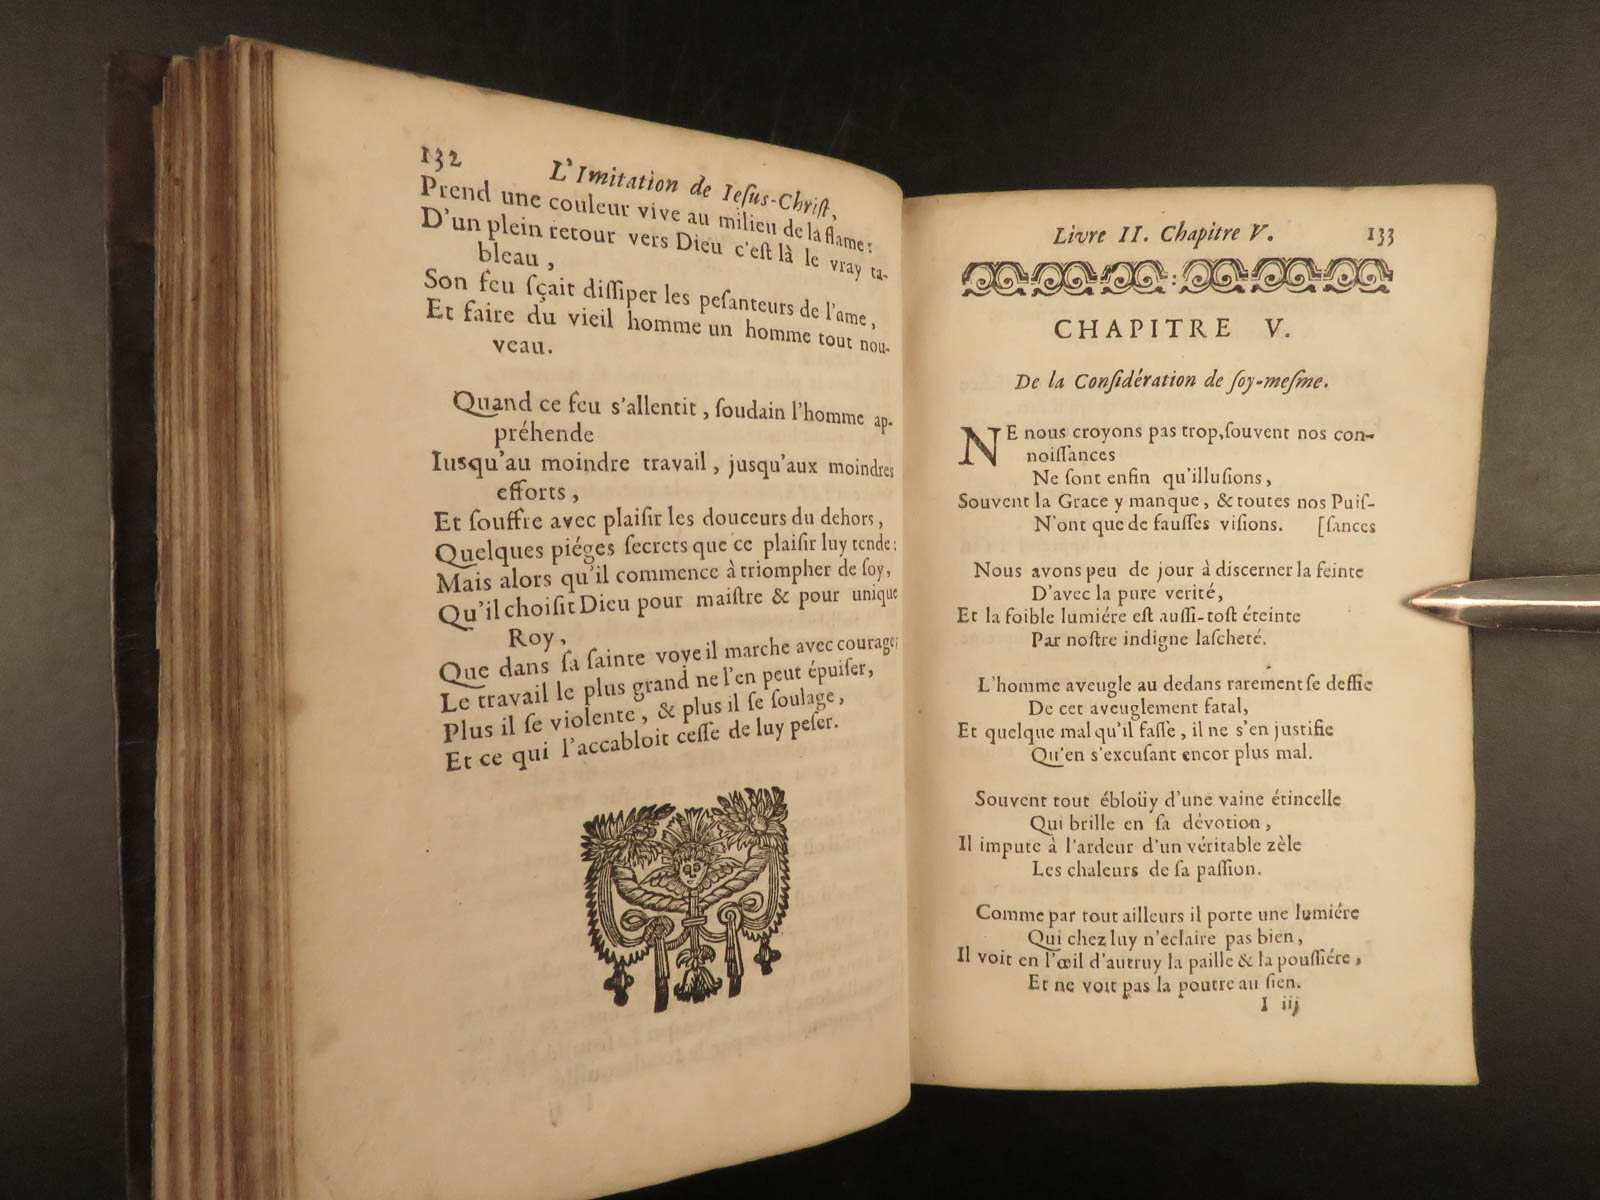 132 L'Imitation de Ieſus-Chriſt,
Prend une couleur vive au milieu de la flame:
D'un plein retour vers Dieu c'eſt là le vray ta-
bleau,
Son feu ſçait diſſiper les peſanteurs de l'ame,
Et faire du vieil homme un homme tout nou-
veau.
Quand ce feu s'allentit, ſoudain l'homme ap-
préhende
Iusqu'au moindre travail, jusqu'aux moindres
efforts,
Et ſouffre avec plaiſir les douceurs du dehors,
Quelques piéges ſecrets que ce plaiſir luy tende:
Mais alors qu'il commence à triompher de ſoy,
Qu'il choiſit Dieu pour maiſtre & pour unique
Roy,
Que dans ſa ſainte voye il marche avec courage;
Le travail le plus grand ne l'en peut épuiſer,
Plus il ſe violente, & plus il ſe ſoulage,
Et ce qui l'accabloit ceſſe de luy peſer.
Livre II. Chapitre V. 133
CHAPITRE V.
De la Conſidération de ſoy-meſme.
NE nous croyons pas trop, ſouvent nos con-
noiſſances
Ne ſont enfin qu'illuſions,
Souvent la Grace y manque, & toutes nos Puiſ-
N'ont que de fauſſes viſions. [ſances
Nous avons peu de jour à discerner la feinte
D'avec la pure verité,
Et la foible lumiére eſt auſſi-toſt éteinte
Par noſtre indigne laſcheté.
L'homme aveugle au dedans rarement ſe deffie
De cet aveuglement fatal,
Et quelque mal qu'il faſſe, il ne s'en juſtifie
Qu'en s'excuſant encor plus mal.
Souvent tout ébloüy d'une vaine étincelle
Qui brille en ſa dévotion,
Il impute à l'ardeur d'un véritable zèle
Les chaleurs de ſa paſſion.
Comme par tout ailleurs il porte une lumiére
Qui chez luy n'eclaire pas bien,
Il voit en l'œil d'autruy la paille & la pouſſiére,
Et ne voit pas la poutre au ſien.
I iij